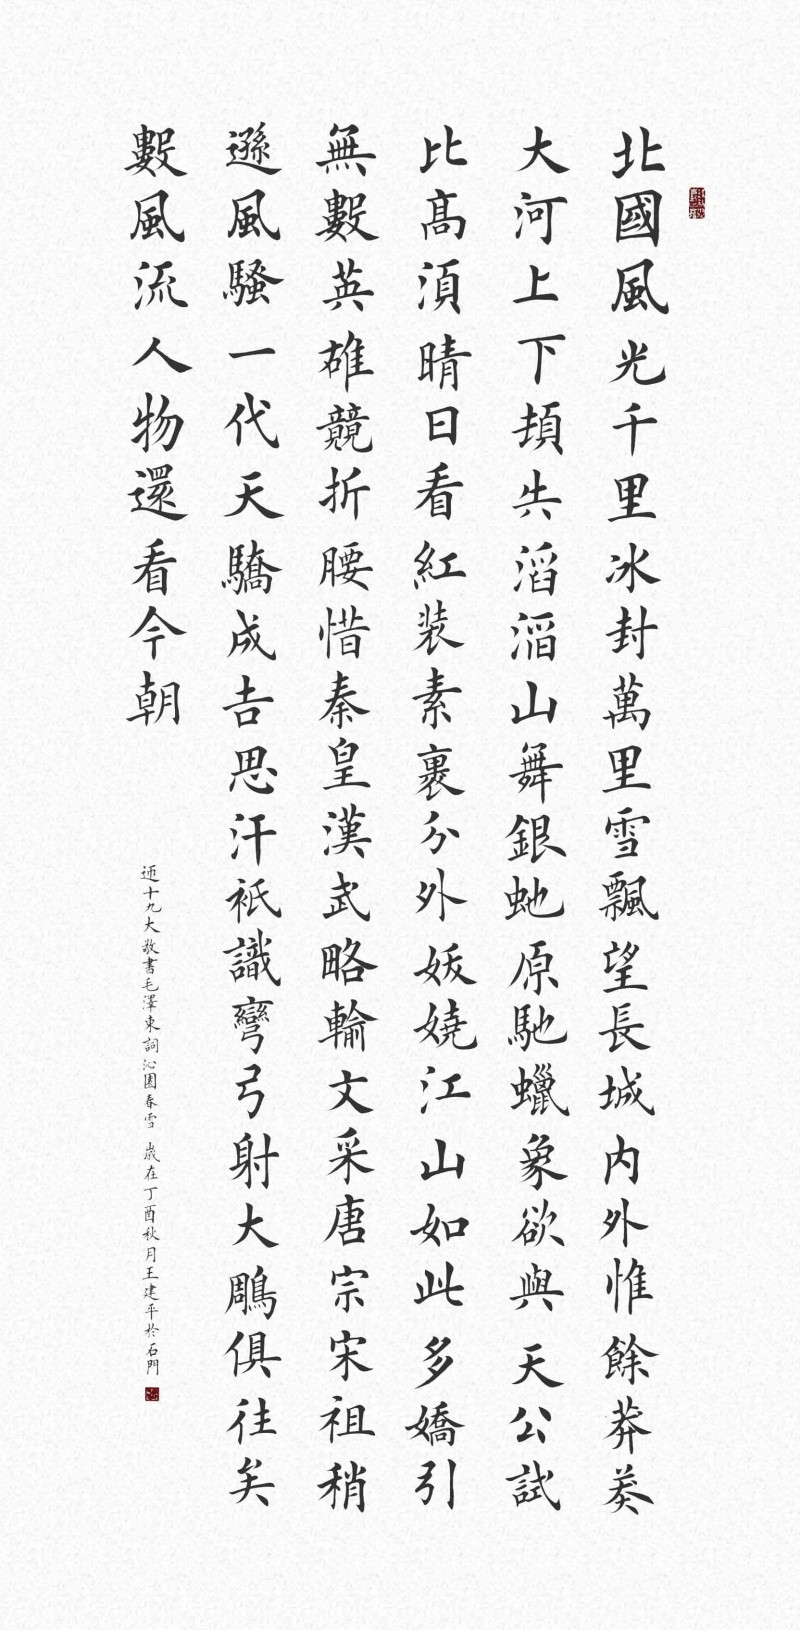 北國風光千里冰封萬里雪飄望長城内外惟餘莽莽
大河上下頓失滔滔山舞銀虵原馳蠟象欲與天公試
比髙須晴日看紅装素裹分外妖嬈江山如此多嬌引
無數英雄競折腰惜秦皇漢武略輸文采唐宗宋祖稍
遜風騷一代天驕成吉思汗祇識彎弓射大鵰俱往矣
數風流人物還看今朝
迎十九大敬書毛澤東詞沁園春雪 歲在丁酉秋月王建平於石門